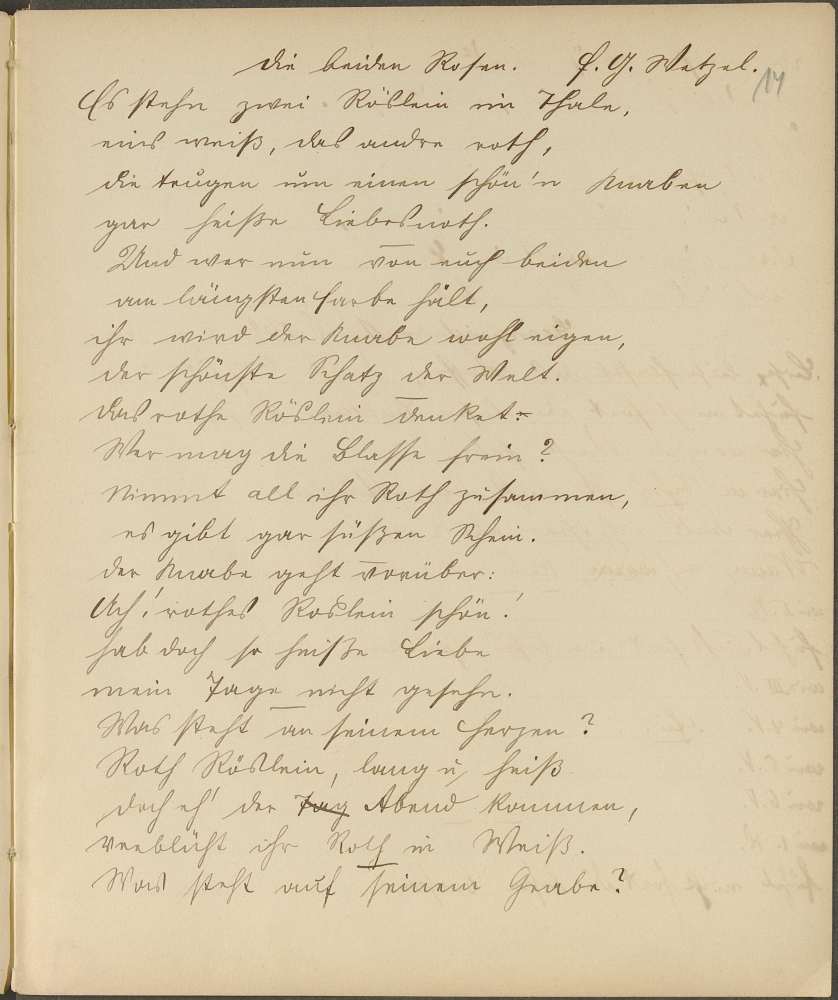 Die beiden Rosen. F. G. Wetzel.
14
Es stehn zwei Röslein im Thale,
eins weiß, das andre roth,
die trugen um einen schön'n Knaben
gar heiße Liebesnoth.
Und wer nun von euch beiden
am längsten Farbe hält,
ihr wird der Knabe wohl eigen,
der schönste Schatz der Welt.
Das rothe Röslein denket:
Wer mag die Blasse frein?
Nimmt all ihr Roth zusammen,
es gibt gar süßen Schein.
Der Knabe geht vorüber:
Ach! rothes Röslein schön!
hab doch so heiße Liebe
mein Tage nicht gesehn.
Was steht an seinem Herzen?
Roth Röslein, lang u. heiß
doch eh' der Tag Abend kommen,
verblüht ihr Roth in Weiß.
Was steht auf seinem Grabe?